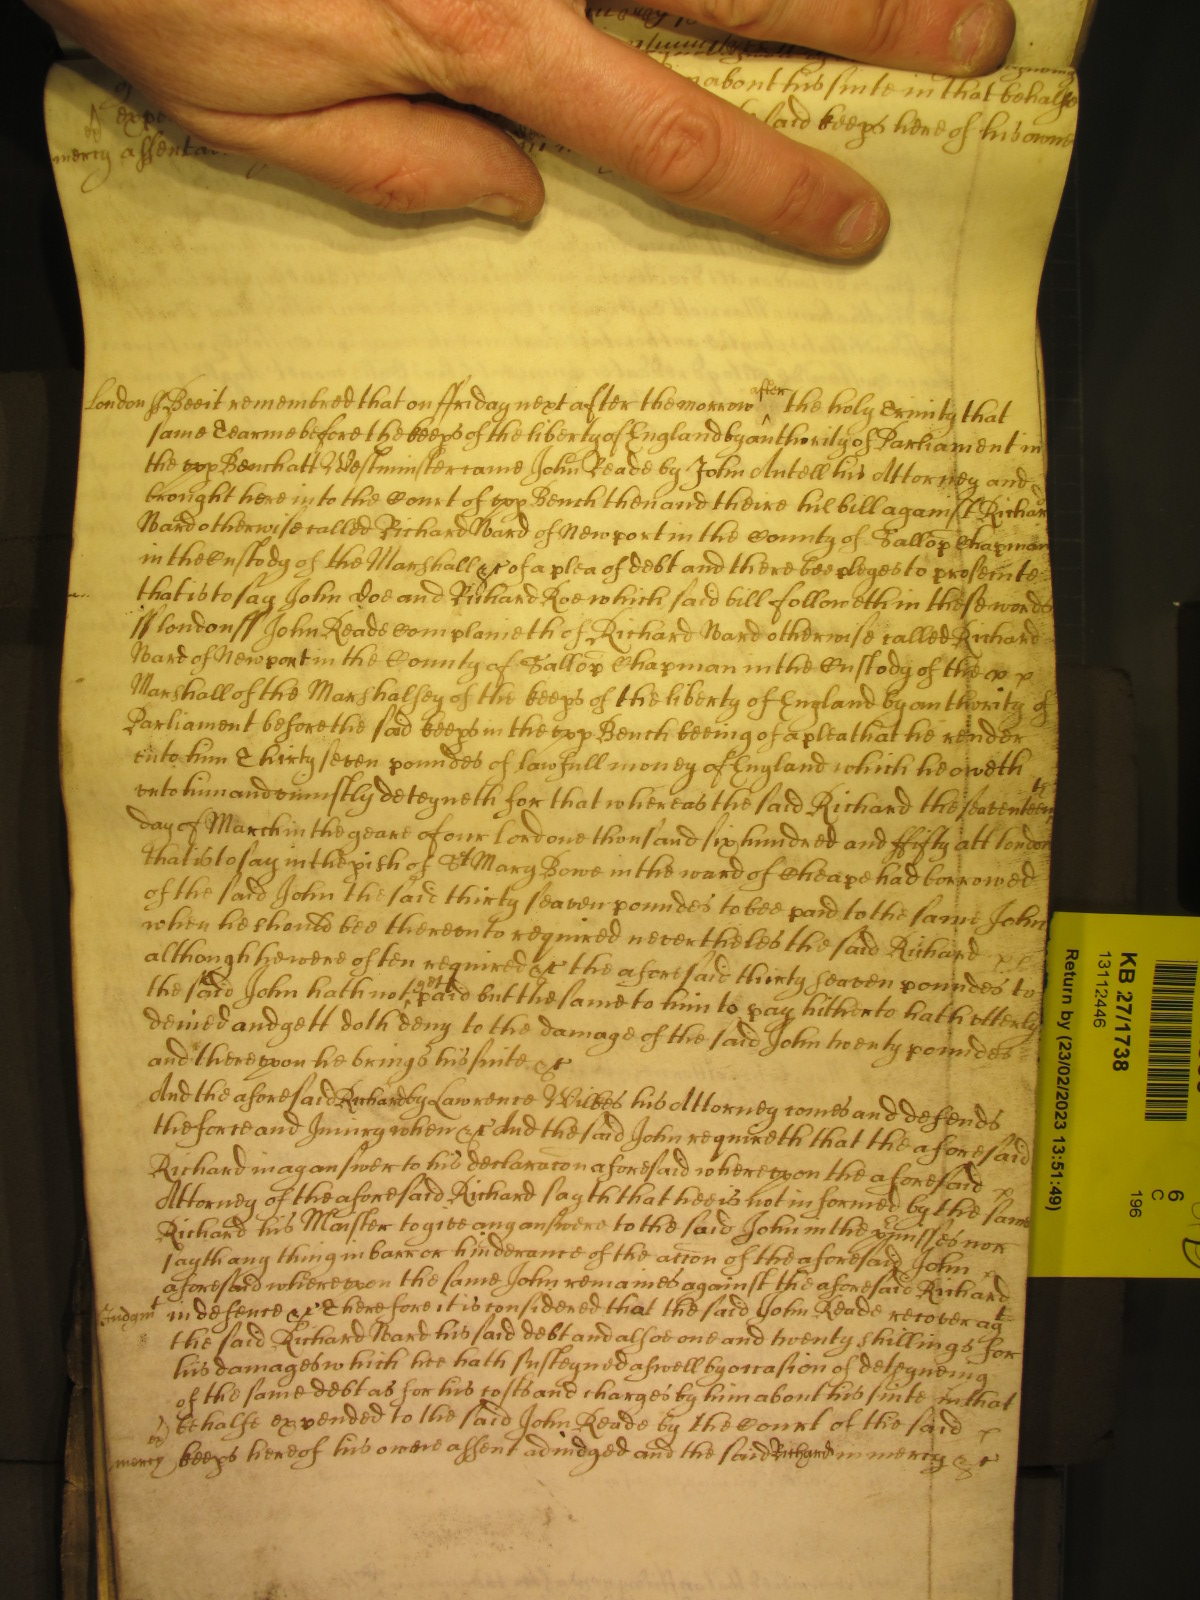 about his suite in that behalfe
said keeps here of his owne
mercy assent
London ss Bee it remembred that on ffriday next after the morrow after the holy Trinity that
same Tearme before the keeps of the liberty of England by authority of Parliament in
the upp Bench att Westminster came John Reade by John Antell his Attorney and
brought here into the Court of upp Bench then and theire his bill against Richard
Ward otherwise called Richard Ward of Newport in the County of Sallop Chapman
in the Custody of the Marshall &c of a plea of debt and there bee pleges to prosecute
that is to say John Doe and Richard Roe which said bill followeth in these words
ss London ss John Reade Complaineth of Richard Ward otherwise called Richard
Ward of Newport in the County of Sallop Chapman in the Custody of the
Marshall of the Marshalsey of the keeps of the liberty of England by authority of
Parliament before the said keeps in the upp Bench beeing of a plea that he render
unto him Thirty seven poundes of lawfull money of England which he oweth
unto him and uniustly deteyneth for that whereas the said Richard the seaventeenth
day of March in the yeare of our Lord one thousand six hundred and ffifty att London
that is to say in the pish of St Mary Bowe in the ward of Cheape had borrowed
of the said John the said thirty seaven poundes to bee paid to the same John
when he should bee thereunto required nevertheles the said Richard
although he were often required &c the aforesaid thirty seaven poundes to
the said John hath not yet paid but the same to him to pay hitherto hath utterly
denied and yett doth deny to the damage of the said John twenty poundes
and thereupon he brings his suite &c
And the aforesaid Richard by Lawrence Wilkes his Attorney comes and defends
the force and Iniury when &c And the said John requireth that the aforesaid
Richard may answer to his declaracon aforesaid whereupon the aforesaid
Attorney of the aforesaid Richard sayth that hee is not informed by the same
Richard his Maister to give any answere to the said John in the pmisses nor
sayth any thing in barr or hinderance of the accon of the aforesaid John
aforesaid whereupon the same John remaines against the aforesaid Richard
Iudgmt in defence &c Therefore it is considered that the said John Reade recover agt
the said Richard Ward his said debt and alsoe one and twenty shillings for
his damages which hee hath susteyned aswell by occasion of deteyneing
of the same debt as for his costs and charges by him about his suite in that
behalfe expended to the said John Reade by the Court of the said
mercy keeps here of his owne assent adiudged and the said Richard in mercy &c
KB 27/1738
13112446
Return by (23/02/2023 13:51:49)
6
C
196